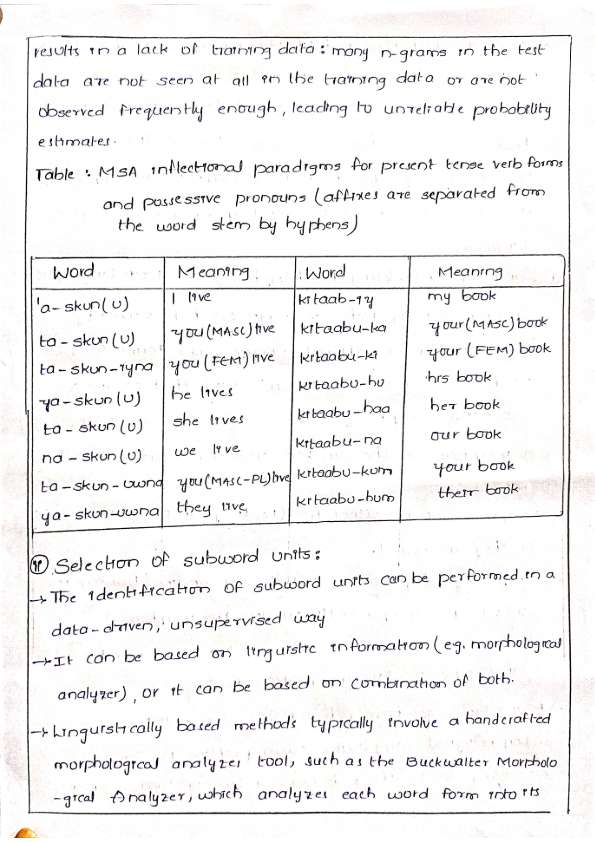 results in a lack of training data: many n-grams in the test
data are not seen at all in the training data or are not
observed frequently enough, leading to unreliable probability
estimates.
Table : MSA inflectional paradigms for present tense verb forms
and possessive pronouns (affixes are separated from
the word stem by hyphens)
Word Meaning Word Meaning
'a-skun(u) I live kitaab-iy my book
ta-skun(u) you(MASC)live kitaabu-ka your(MASC)book
ta-skun-iyna you(FEM)live kitaabu-ki your (FEM) book
ya-skun(u) he lives kitaabu-hu his book
ta-skun(u) she lives kitaabu-haa her book
na-skun(u) we live kitaabu-na our book
ta-skun-uwna you(MASC-PL)live kitaabu-kum your book
ya-skun-uwna they live kitaabu-hum their book
ii Selection of subword units:
→ The identification of subword units can be performed in a
data-driven, unsupervised way
→ It can be based on linguistic information(eg. morphological
analyzer), or it can be based on combination of both.
→ Linguistically based methods typically involve a handcrafted
morphological analyzer tool, such as the Buckwalter Morpholo
-gical Analyzer, which analyzes each word form into its